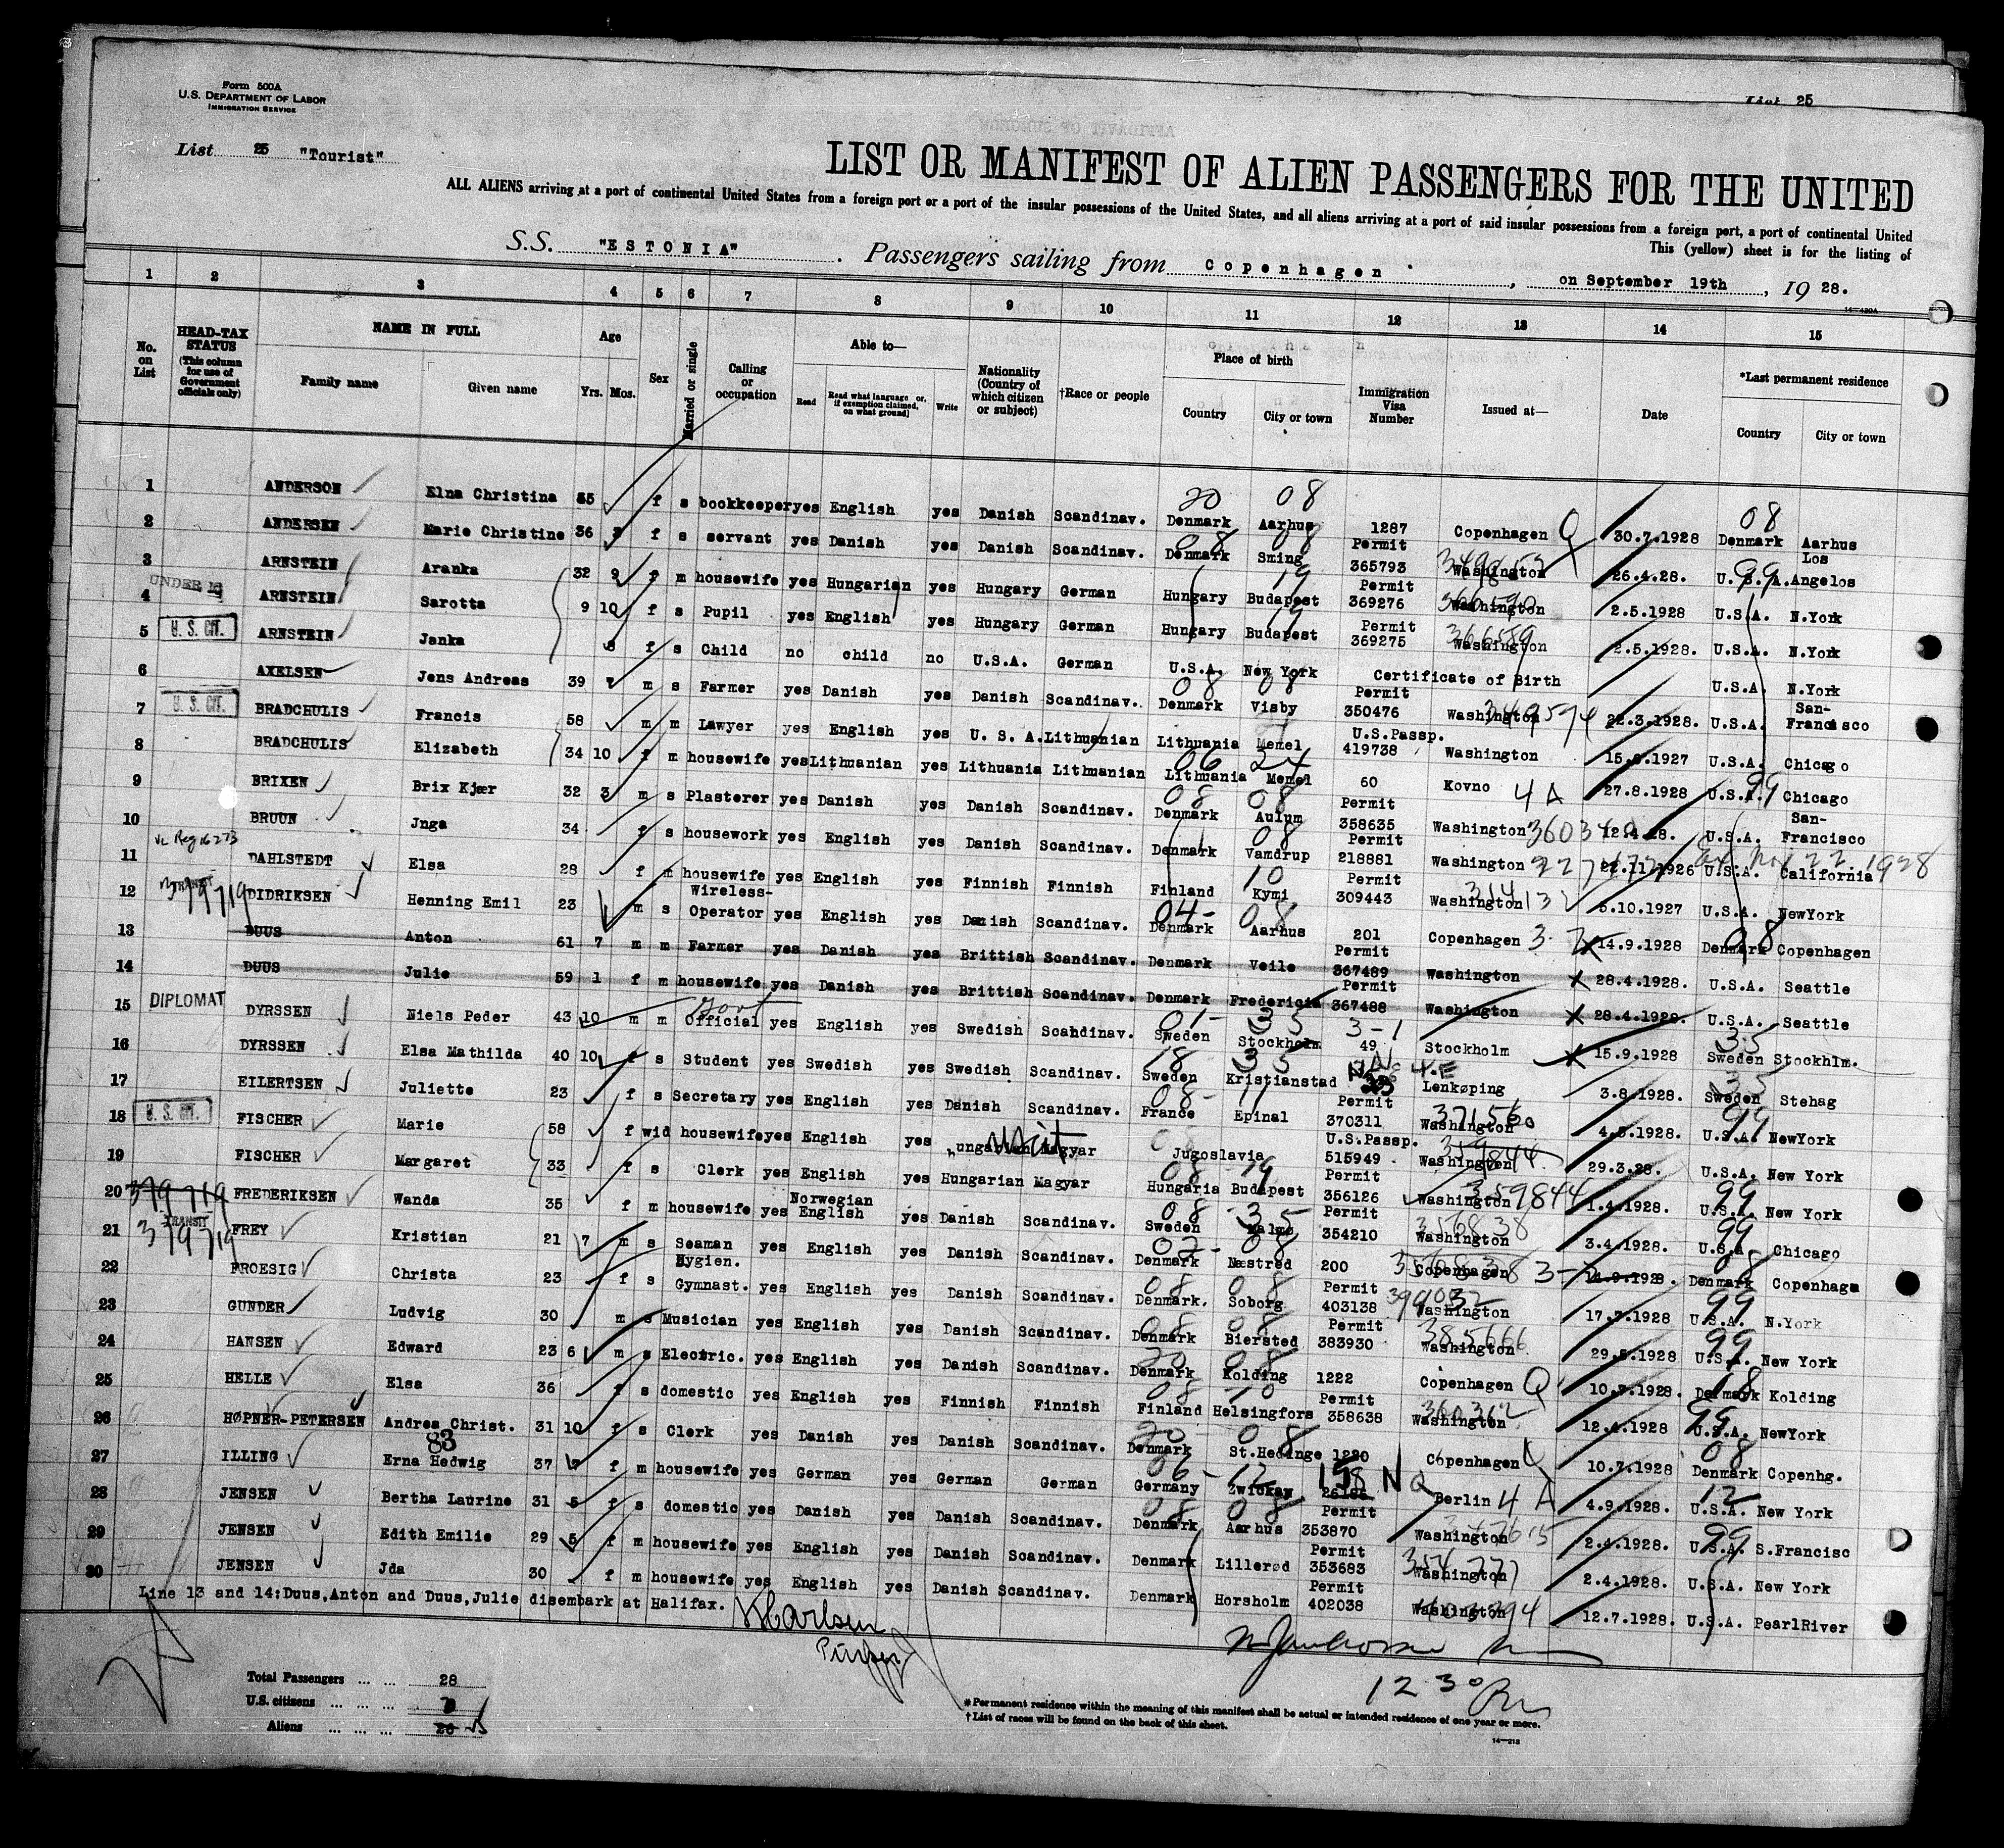 List 25
Form 500A
U.S. DEPARTMENT OF LABOR
IMMIGRATION SERVICE
List 25 "Tourist"
LIST OR MANIFEST OF ALIEN PASSENGERS FOR THE UNITED
ALL ALIENS arriving at a port of continental United States from a foreign port or a port of the insular possessions of the United States, and all aliens arriving at a port of said insular possessions from a foreign port, a port of continental United
This (yellow) sheet is for the listing of
S.S. "ESTONIA". Passengers sailing from Copenhagen, on September 19th, 19 28.
1 2 3 4 5 6 7 8 9 10 11 12 13 14 15
No. on List
HEAD-TAX STATUS (This column for use of Government officials only)
NAME IN FULL Family name Given name
Age Yrs. Mos.
Sex
Married or single
Calling or occupation
Able to— Read Read what language or, if exemption claimed, on what ground) Write
Nationality (Country of which citizen or subject)
†Race or people
Place of birth Country City or town
Immigration Visa Number
Issued at—
Date
*Last permanent residence Country City or town
1 ANDERSON Elna Christina f s bookkeeper yes English yes Danish Scandinav. Denmark Aarhus 1287 Copenhagen Q 30.7.1928 Denmark Aarhus
2 ANDERSEN Marie Christine 36 f s servant yes Danish yes Danish Scandinav. Denmark Sming Permit 365793 Washington 26.4.28. U.S.A. Los Angelos
3 ARNSTEIN Aranka 32 9 f m housewife yes Hungarian yes Hungary German Hungary Budapest Permit 369276 Washington 2.5.1928 U.S.A. N.York
UNDER 16
4 ARNSTEIN Sarotta 9 10 f s Pupil yes English yes Hungary German Hungary Budapest Permit 369275 Washington 2.5.1928. U.S.A. N.York
5 U. S. CIT. ARNSTEIN Janka f s Child no child no U.S.A. German U.S.A. New York Certificate of Birth U.S.A. N.York
6 AXELSEN Jens Andreas 39 m s Farmer yes Danish yes Danish Scandinav. Denmark Visby Permit 350476 Washington 22.3.1928. U.S.A. San-Francisco
7 U. S. CIT. BRADCHULIS Francis 58 m m Lawyer yes English yes U. S. A. Lithuanian Lithuania Memel U.S.Passp. 419738 Washington 1927 U.S.A. Chicago
8 BRADCHULIS Elizabeth 34 10 f m housewife yes Lithuanian yes Lithuania Lithuanian Lithuania Memel 60 Kovno 4 A 27.8.1928 U.S.A. Chicago
9 BRIXEN Brix Kjær 32 3 m s Plasterer yes Danish yes Danish Scandinav. Denmark Aulum Permit 358635 Washington 12.4.28. U.S.A. San-Francisco
10 BRUUN Jnga 34 f s housework yes English yes Danish Scandinav. Denmark Vamdrup Permit 218881 Washington 22.11.1926 U.S.A. California
11 DAHLSTEDT Elsa 28 f m housewife yes English yes Finnish Finnish Finland Kymi Permit 309443 Washington 5.10.1927 U.S.A. NewYork
12 TRANSIT 379719 DIDRIKSEN Henning Emil 23 m s Wireless-Operator yes English yes Danish Scandinav. Denmark Aarhus 201 Copenhagen 14.9.1928 Denmark Copenhagen
13 DUUS Anton 61 7 m m Farmer yes Danish yes Brittish Scandinav. Denmark Veile Permit 367489 Washington 28.4.1928. U.S.A. Seattle
14 DUUS Julie 59 1 f m housewife yes Danish yes Brittish Scandinav. Denmark Fredericia Permit 367488 Washington 28.4.1928. U.S.A. Seattle
15 DIPLOMAT DYRSSEN Niels Peder 43 10 m m Govt Official yes English yes Swedish Scandinav. Sweden Stockholm 49 Stockholm 15.9.1928 Sweden Stockhlm.
16 DYRSSEN Elsa Mathilda 40 10 f s Student yes Swedish yes Swedish Scandinav. Sweden Kristianstad Lenkøping 3.8.1928. Sweden Stehag
17 EILERTSEN Juliette 23 f s Secretary yes English yes Danish Scandinav. France Epinal Permit 370311 Washington 4.5.1928. U.S.A. NewYork
18 U. S. CIT. FISCHER Marie 58 f wid housewife yes English yes Magyar Jugoslavia U.S.Passp. 515949 Washington 29.3.28. U.S.A. New York
19 FISCHER Margaret 33 f s Clerk yes English yes Hungarian Magyar Hungaria Budapest Permit 356126 Washington 359844 1.4.1928. U.S.A. New York
20 379719 FREDERIKSEN Wanda 35 f m housewife yes Norwegian English yes Danish Scandinav. Sweden Malmø Permit 354210 Washington 356838 3.4.1928. U.S.A. Chicago
21 TRANSIT 379719 FREY Kristian 21 7 m s Seaman yes English yes Danish Scandinav. Denmark Næstred 200 Copenhagen 14.9.1928. Denmark Copenhage
22 FROESIG Christa 23 f s Hygien. Gymnast. yes English yes Danish Scandinav. Denmark. Soborg Permit 403138 Washington 17.7.1928 U.S.A. N.York
23 GUNDER Ludvig 30 m s Musician yes English yes Danish Scandinav. Denmark Biersted Permit 383930 Washington 385666 29.5.1928 U.S.A. New York
24 HANSEN Edward 23 6 m s Electric. yes English yes Danish Scandinav. Denmark Kolding 1222 Copenhagen Q 10.7.1928. Denmark Kolding
25 HELLE Elsa 36 f s domestic yes English yes Finnish Finnish Finland Helsingfors Permit 358638 Washington 12.4.1928 U.S.A. NewYork
26 HØPNER-PETERSEN Andrea Christ. 31 10 f s Clerk yes Danish yes Danish Scandinav. Denmark St.Hedinge 1220 Copenhagen 10.7.1928 Denmark Copenhg.
27 ILLING Erna Hedwig 37 f m housewife yes German yes German German Germany Zwickau 158 Berlin 4 A 4.9.1928. U.S.A. New York
28 JENSEN Bertha Laurine 31 5 f s domestic yes Danish yes Danish Scandinav. Denmark Aarhus Permit 353870 Washington 2.4.1928. U.S.A. S.Francisc
29 JENSEN Edith Emilie 29 5 f m housewife yes English yes Danish Scandinav. Denmark Lillerød Permit 353683 Washington 2.4.1928. U.S.A. New York
30 JENSEN Jda 30 f m housewife yes English yes Danish Scandinav. Denmark Horsholm Permit 402038 Washington 12.7.1928. U.S.A. PearlRiver
Line 13 and 14:Duus,Anton and Duus,Julie disembark at Halifax.
Purser
12 30 Pm
Total Passengers ... ... 28
U.S. citizens ... ... ... 3
Aliens ... ... ... 26 25
*Permanent residence within the meaning of this manifest shall be actual or intended residence of one year or more.
†List of races will be found on the back of this sheet.